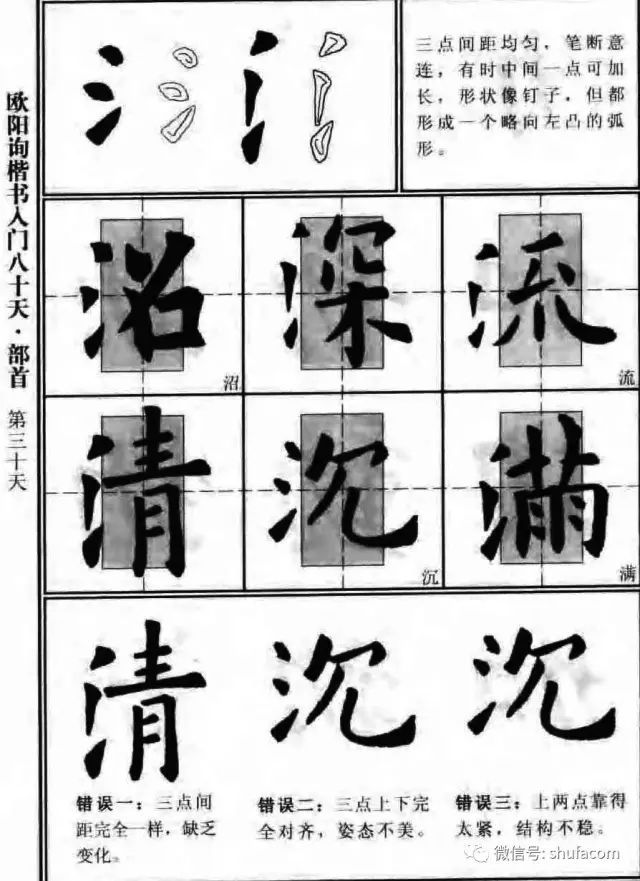 欧阳询楷书入门八十天·部首 第三十天
三点间距均匀，笔断意
连，有时中间一点可加
长，形状像钉子，但都
形成一个略向左凸的弧
形。
沼 深 流
沼
流
清 沉 满
沉
满
清 沉 沉
错误一：三点间
距完全一样，缺乏
变化。
错误二：三点上下完
全对齐，姿态不美。
错误三：上两点靠得
太紧，结构不稳。
微信号: shufacom